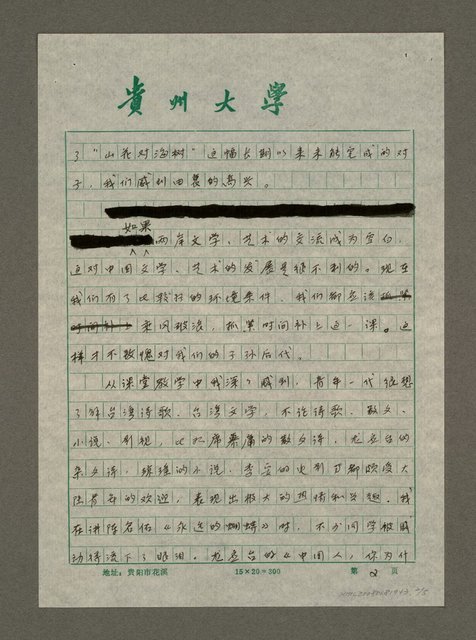 貴州大學
了“山花对海树”这幅长期以来未能完成的对
子，我们感到由衷的高兴。
如果
两岸文学、艺术的交流成为空白，
这对中国文学、艺术的发展是很不利的。现在
我们有了比较好的环境条件，我们都应该抓紧
时间补上乘风破浪，抓紧时间补上这一课。这
样才不致愧对我们的子孙后代。
从课堂教学中我深深感到，青年一代很想
了解台湾诗歌、台湾文学，不论诗歌、散文、
小说、影视，比如席慕蓉的散文诗，龙应台的
杂文，琼瑶的小说，李安的电影都颇受大
陆青年的欢迎，表现出极大的热情和兴趣。我
在讲陈启佑《永远的蝴蝶》时，不少同学被感
动得流下了眼泪。龙应台的《中国人，你为什
地址：贵阳市花溪 15×20=300 第 2 页